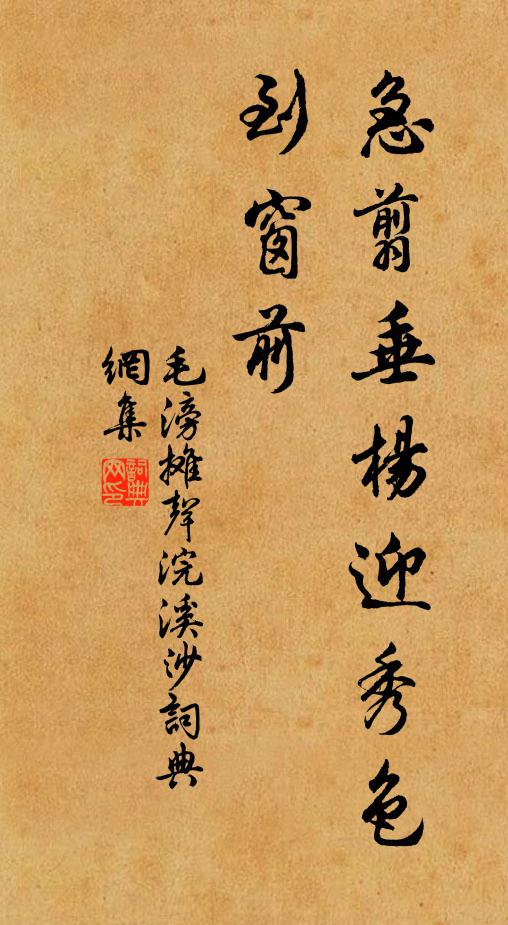 急翦垂楊迎秀色
到窗前
毛滂攤聲浣溪沙詞典
網集
詞典
网印